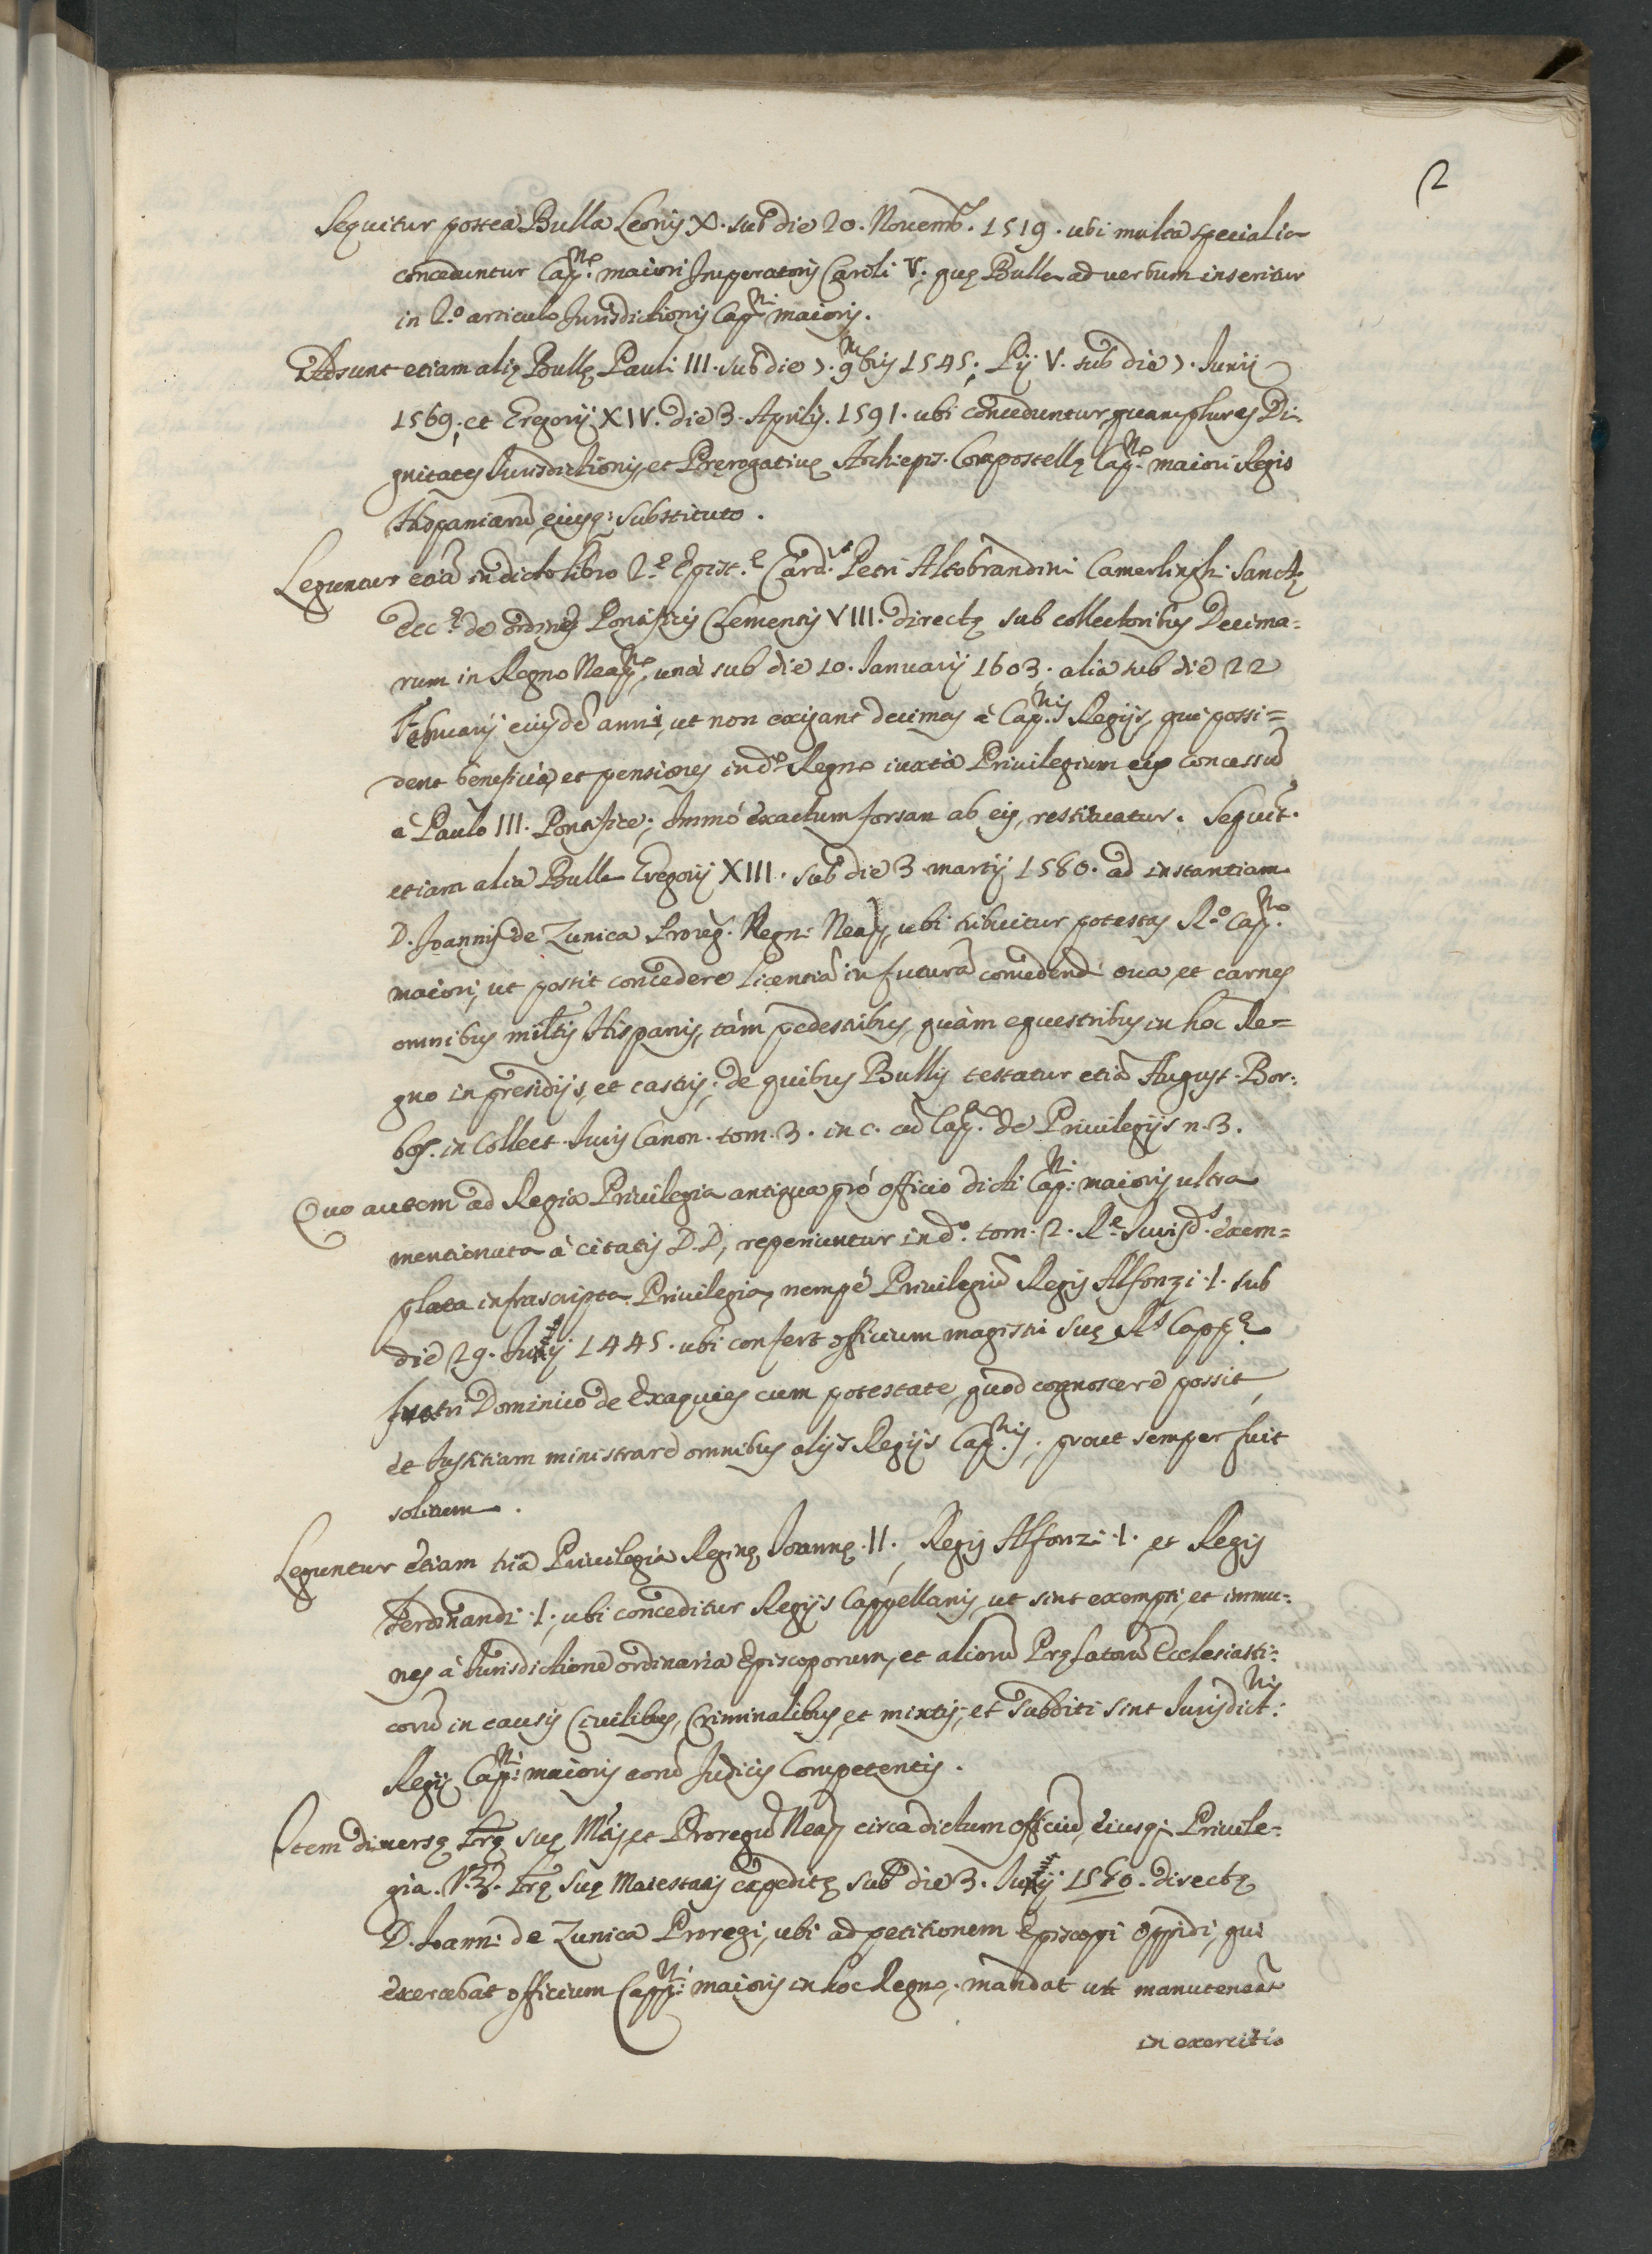 2
Sequitur postea Bulla Leonis X. sub die 20. Novemb. 1519. ubi multa specialia
conceduntur Cap.no maiori Imperatoris Caroli V. quę Bulla ad verbum inseritur
in 2.o articulo Jurisdictionis Cap.ni maioris.
Adsunt etiam alię Bullę Pauli III. sub die 7. 9mbris 1545; Pij V. sub die 7. Junij
1569; et Gregorij XIV. die 3. Aprilis. 1591. ubi conceduntur quamplures Di-
gnitates Jurisdictionis, et Prerogativę Archiepis. Compostellę Cap.no maiori Regis
Hispaniarū, eiusq; substituto.
Leguntur etiā in dicto libro 2.ę Epist.ę Card.lis Petri Altobrandini Camerlinghi Sanctę
Ecc.ę de ordine Pontificis Clementis VIII. directę sub collectoribus Decima-
rum in Regno Neap.no, unā sub die 10. Januarij 1603. alia sub die 22
Februarij eiusdē anni, ut non exigant decimas à Cap.nis Regijs, qui possi=
dent beneficia, et pensiones in d.o Regno iuxta Privilegium eis concessū
à Paulo III. Pontifice; Immò exactum forsan ab eis, restituatur. Sequit.
etiam alia Bulla Gregorij XIII. sub die 3 martij 1580. ad instantiam
D. Joannis de Zunica Proreg. Regni Neap, ubi tribuitur potestas R.o Cap.no
maiori, ut possit concedere licentiā in futurā comedendi ova, et carnes
omnibus militis Hispanis, tàm pedestribus, quàm equestribus in hoc Re=
gno in presidijs, et castris; de quibus Bullis testatur etiā August. Bar-
bos. in Collect. Juris Canon. tom. 3. in c. cū Cap.a de Privilegijs n. 3.
Quo autem ad Regia Privilegia antiqua prò officio dicti Cap.ni maioris ultra
mentionata à citatis DD, reperiuntur in d.o tom. 2. R.ę Jurisd.s exem=
plata infrascripta Privilegia, nempè Privilegiū Regis Alfonzi I. sub
die 29. 1445. ubi confert officium magistri suę R.s Capp.ę
fratri Dominico de Exaquies cum potestate, quod cognoscere possit,
et Justitiam ministrare omnibus alijs Regijs Cap.nis, prout semper fuit
solitum.
Leguntur etiam tria Privilegia Reginę Joannę II., Regis Alfonzi I. et Regis
Ferdinandi I. ubi conceditur Regijs Cappellanis, ut sint exempti, et immu-
nes à Jurisdictione ordinaria Episcoporum, et aliorū Pręlatorū Ecclesiasti-
corū in causis Civilibus, Criminalibus, et mixtis, et subditi sint Jurisdict.nis
Regij Cap.ni maioris eorū Judicis Competentis.
Item diversę Lrę suę Mais, et Proregū Neap circa dictum officiū, eiusq; Privile-
gia. V.Z. Lrę suę Maiestatis expeditę sub die 3. 1580. directę
D. Joanni de Zunica Proregi, ubi ad petitionem Episcopi Oppidi, qui
exercebat officium Capp.ni maioris in hoc Regno, mandat ut manuteneat
in exercitio